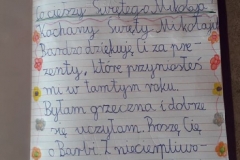 Świętego Mikołaja
Kochany Święty Mikołaju
Bardzo dziękuję Ci za pre-
zenty, które przyniosłeś
mi w tamtym roku.
Byłam grzeczna i dobrze
się uczyłam. Proszę Cię
o Barbi. Z niecierpliwo-